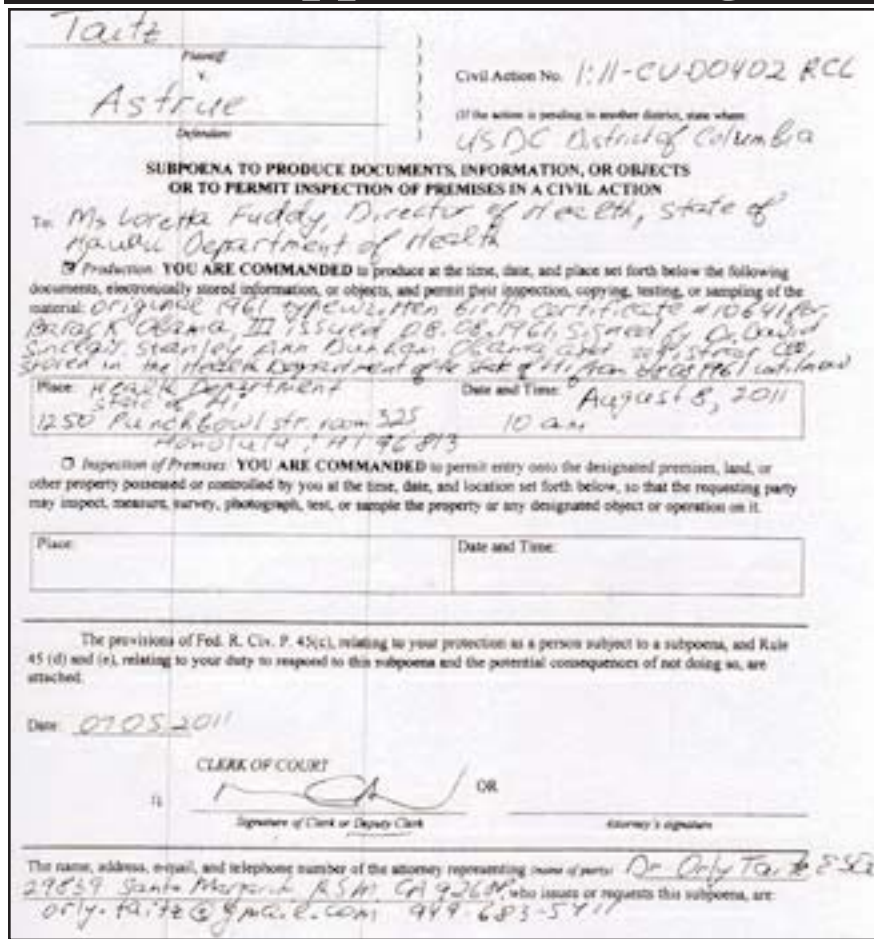 Taitz
Plaintiff
v.
Astrue
Defendant
Civil Action No. 1:11-CV-00402 RCL
(If the action is pending in another district, state where:
USDC District of Columbia
SUBPOENA TO PRODUCE DOCUMENTS, INFORMATION, OR OBJECTS
OR TO PERMIT INSPECTION OF PREMISES IN A CIVIL ACTION
To: Ms Loretta Fuddy, Director of Health, State of
Hawaii Department of Health
Production: YOU ARE COMMANDED to produce at the time, date, and place set forth below the following
documents, electronically stored information, or objects, and permit their inspection, copying, testing, or sampling of the
material: Original 1961 typewritten birth certificate #10641 for
Barack Obama, III issued 08.08.1961, Signed by Dr. David
Sinclair, Stanley Ann Dunham Obama and registrar
stored in the Health Department of the State of HI from 08.08.1961 until now
Place: Health Department
State of HI
1250 Punchbowl str. room 325
Honolulu, HI 96813
Date and Time:
August 8, 2011
10 am
Inspection of Premises: YOU ARE COMMANDED to permit entry onto the designated premises, land, or
other property possessed or controlled by you at the time, date, and location set forth below, so that the requesting party
may inspect, measure, survey, photograph, test, or sample the property or any designated object or operation on it.
Place:
Date and Time:
The provisions of Fed. R. Civ. P. 45(c), relating to your protection as a person subject to a subpoena, and Rule
45 (d) and (e), relating to your duty to respond to this subpoena and the potential consequences of not doing so, are
attached.
Date: 07.05.2011
CLERK OF COURT
OR
Signature of Clerk or Deputy Clerk
Attorney's signature
The name, address, e-mail, and telephone number of the attorney representing (name of party) Dr Orly Taitz ESQ
29839 Santa Margarita RSM CA 92688, who issues or requests this subpoena, are:
orly.taitz@gmail.com 949-683-5411